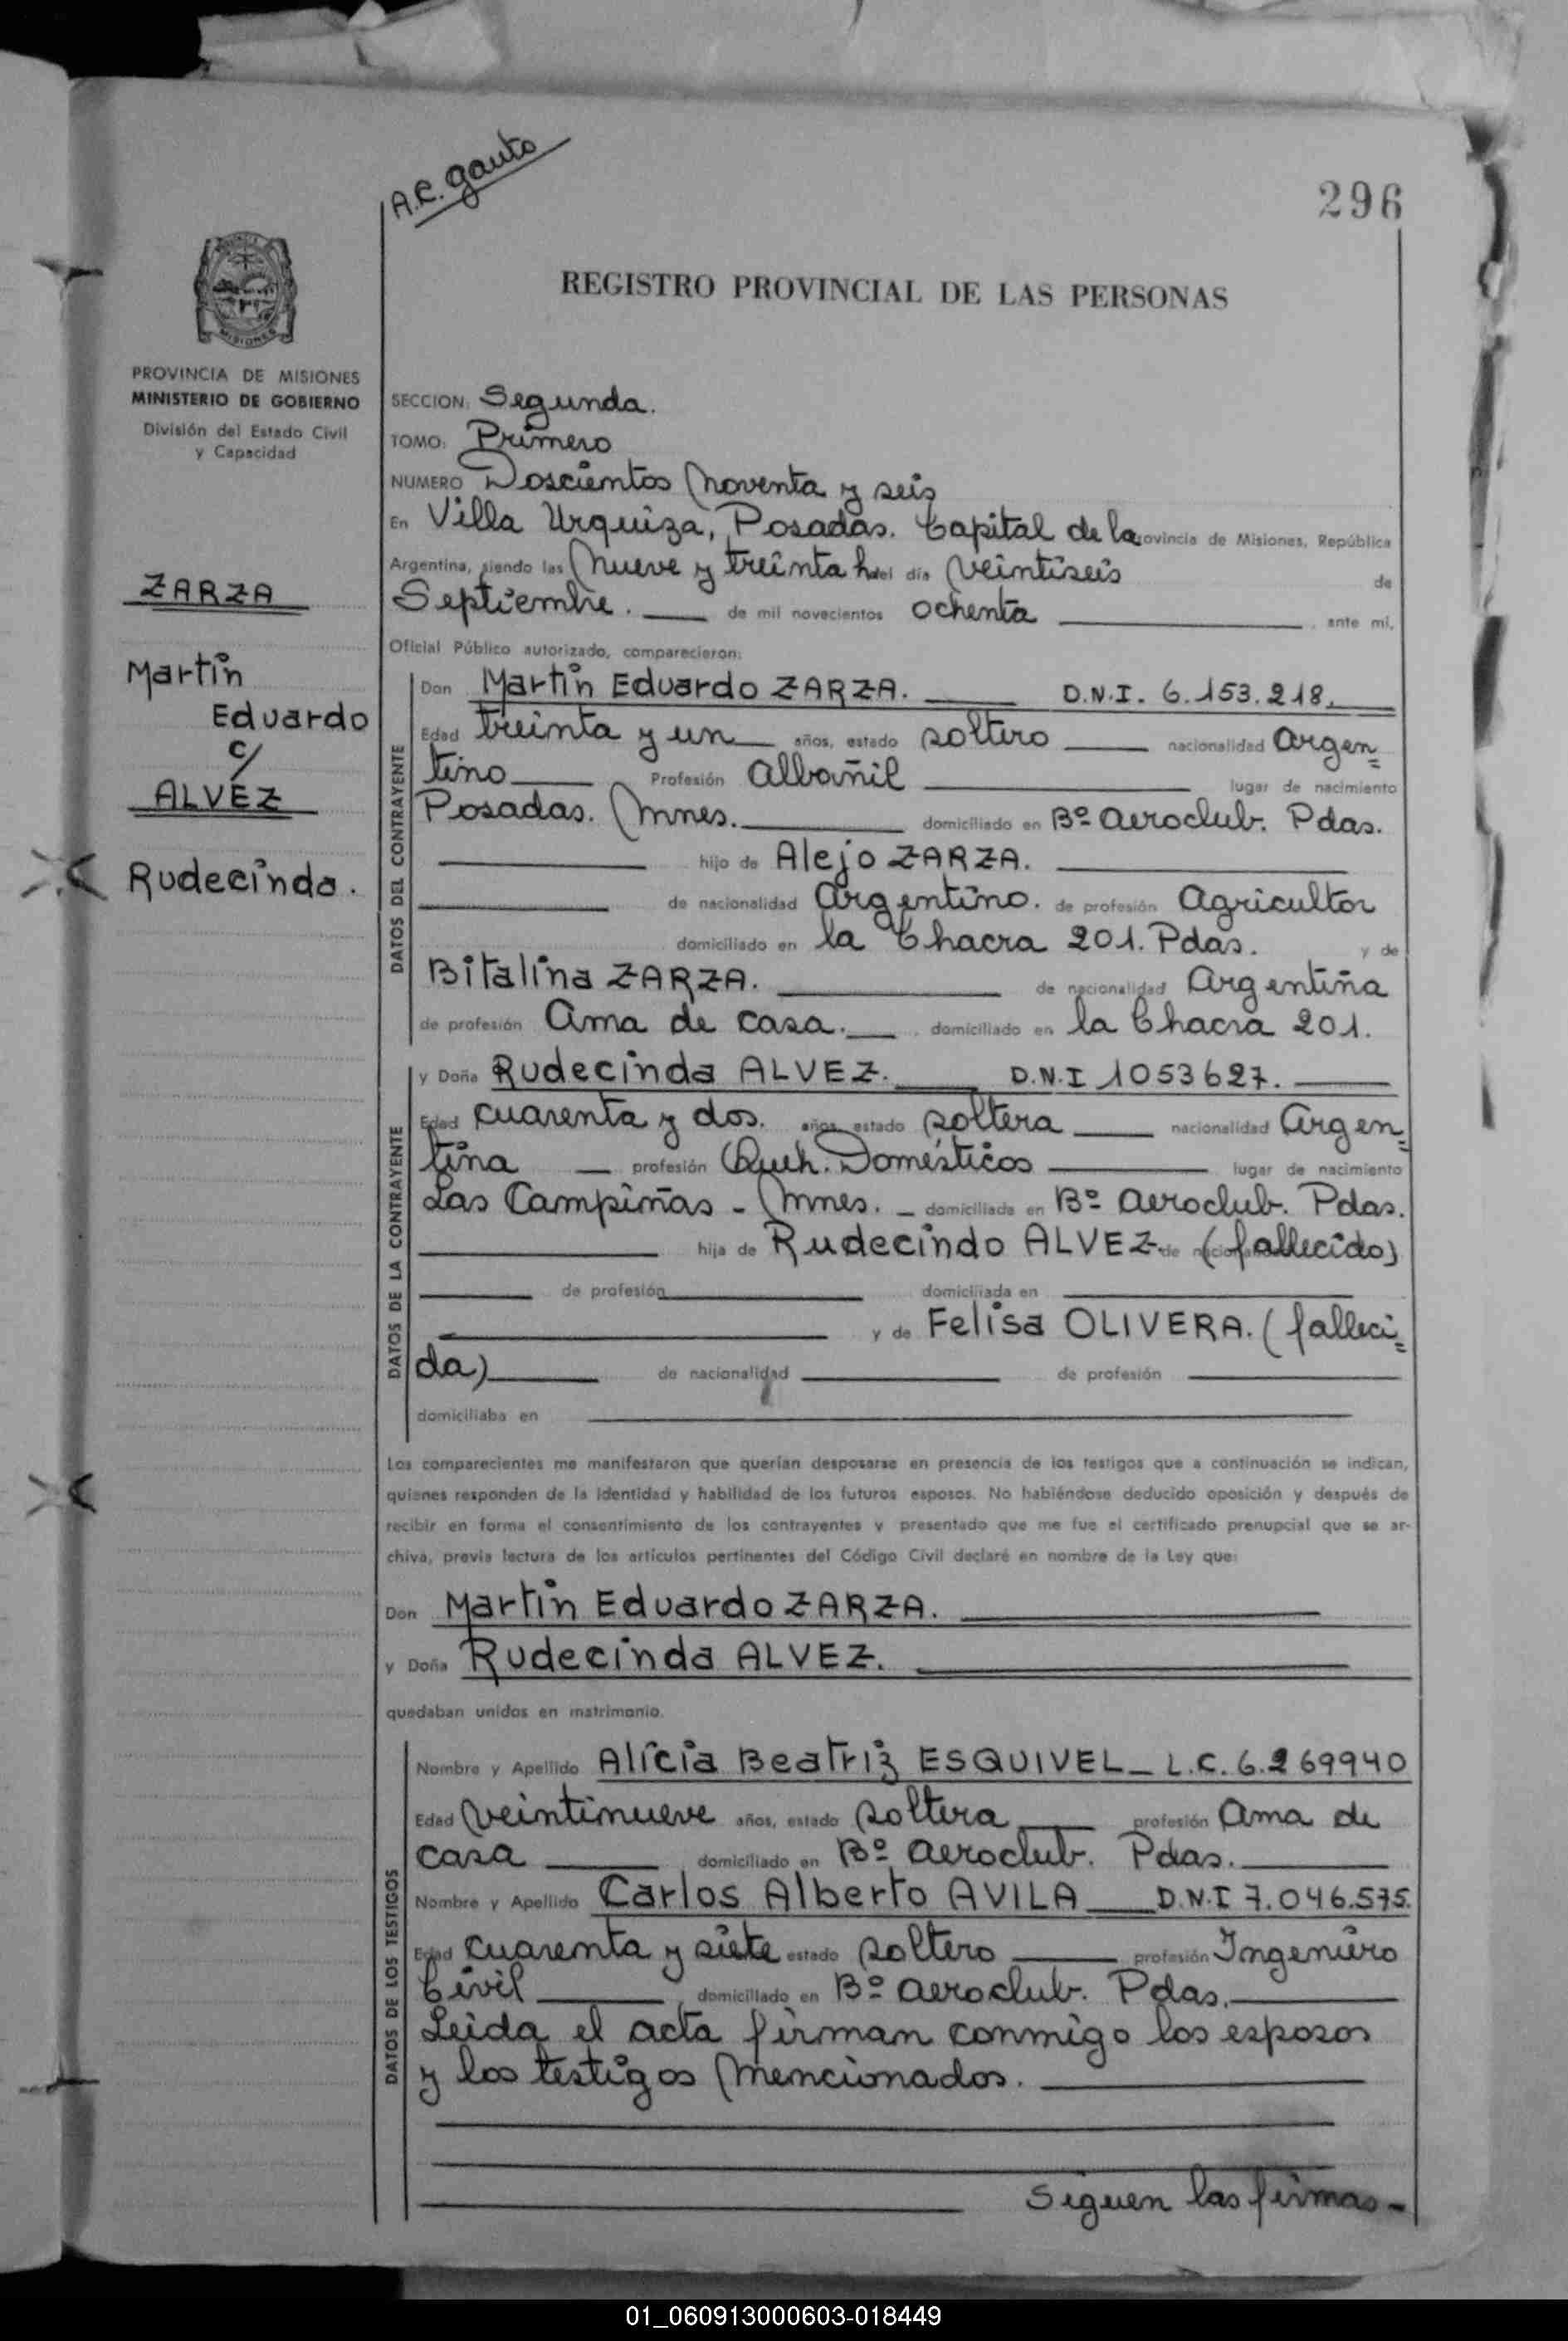 A.C. Gauto
296
REGISTRO PROVINCIAL DE LAS PERSONAS
MISIONES
PROVINCIA DE MISIONES
MINISTERIO DE GOBIERNO
División del Estado Civil
y Capacidad
ZARZA
Martin
Eduardo
c/
ALVEZ
Rudecinda.
SECCION: Segunda.
TOMO: Primero
NUMERO Doscientos noventa y seis
En Villa Urquiza, Posadas. Capital de la Provincia de Misiones, República
Argentina, siendo las nueve y treinta h. del día veintiseis de
Septiembre. de mil novecientos ochenta ante mi,
Oficial Público autorizado, comparecieron:
DATOS DEL CONTRAYENTE
Don Martin Eduardo ZARZA. D.N.I. 6.153.218.
Edad treinta y un años, estado soltero nacionalidad argen=
tino Profesión albañil lugar de nacimiento
Posadas. Mnes. domiciliado en Bº aeroclub. Pdas.
hijo de Alejo ZARZA.
de nacionalidad argentino. de profesión agricultor
domiciliado en la Chacra 201. Pdas. y de
Bitalina ZARZA. de nacionalidad argentina
de profesión ama de casa. domiciliado en la Chacra 201.
DATOS DE LA CONTRAYENTE
y Doña Rudecinda ALVEZ. D.N.I 1053627.
Edad cuarenta y dos. años, estado soltera nacionalidad argen=
tina profesión Queh. Domésticos lugar de nacimiento
Las Campiñas - Mnes. domiciliada en Bº aeroclub. Pdas.
hija de Rudecindo ALVEZ de (fallecido)
de profesión domiciliada en
y de Felisa OLIVERA. (falleci=
da) de nacionalidad de profesión
domiciliaba en
Los comparecientes me manifestaron que querían desposarse en presencia de los testigos que a continuación se indican,
quienes responden de la identidad y habilidad de los futuros esposos. No habiéndose deducido oposición y después de
recibir en forma el consentimiento de los contrayentes y presentado que me fue el certificado prenupcial que se ar-
chiva, previa lectura de los artículos pertinentes del Código Civil declaré en nombre de la Ley que:
Don Martin Eduardo ZARZA.
y Doña Rudecinda ALVEZ.
quedaban unidos en matrimonio.
DATOS DE LOS TESTIGOS
Nombre y Apellido Alicia Beatriz ESQUIVEL - L.C. 6.269940
Edad veintinueve años, estado soltera profesión ama de
casa domiciliado en Bº aeroclub. Pdas.
Nombre y Apellido Carlos Alberto AVILA D.N.I 7.046.575.
Edad cuarenta y siete estado soltero profesión Ingeniero
Civil domiciliado en Bº aeroclub. Pdas.
Leida el acta firman conmigo los esposos
y los testigos mencionados.
Siguen las firmas-
01_060913000603-018449